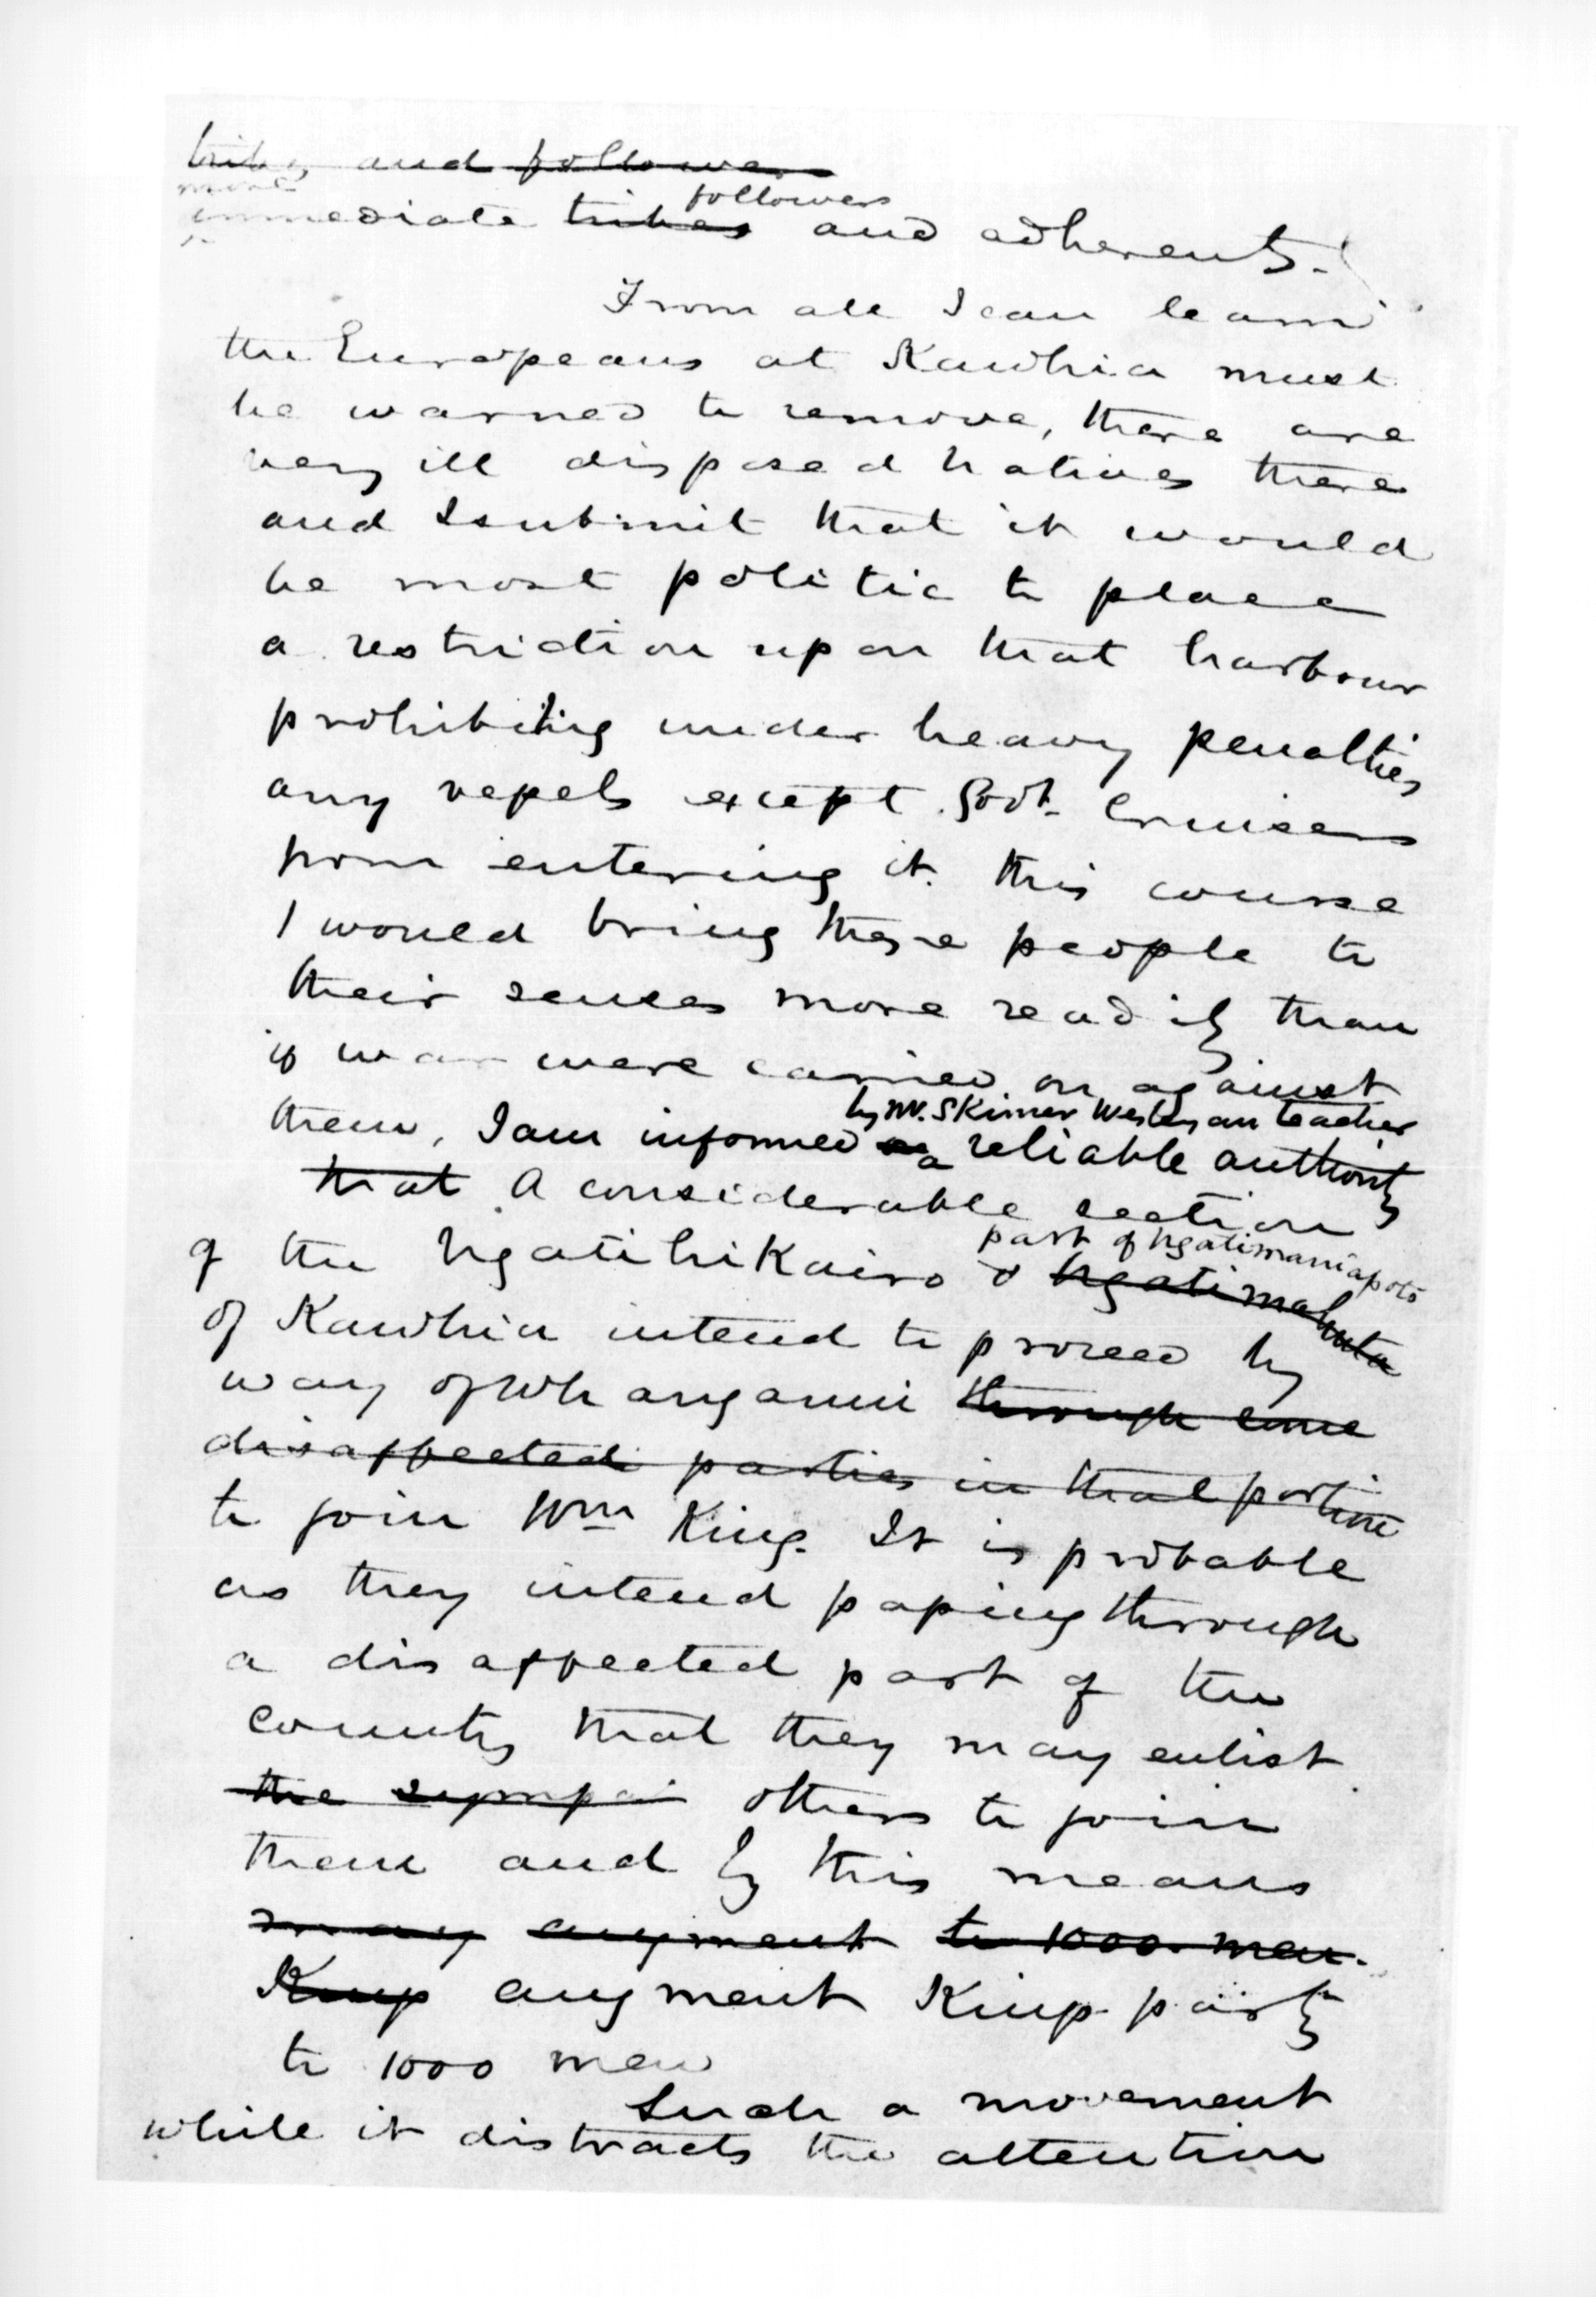 tribes and followers
more
followers
immediate tribes and adherents.
From all I can learn
the Europeans at Kawhia must
be warned to remove, there are
very ill disposed natives there
and I submit that it would
be most politic to place
a restriction upon that harbour
prohibiting under heavy penalties
any vessels except Govt. Cruisers
from entering it. this course
I would bring these people to
their senses more readily than
if war were carried on against
by Mr. Skinner Wesleyan teacher
them, I am informed on a reliable authority
that A considerable section
part of Ngatimaniapoto
of the Ngatihikairo & Ngatimahuta
of Kawhia intend to proceed by
way of Whanganui through some
disaffected parties in that portion
to join Wm King. It is probable
as they intend passing through
a disaffected part of the
country that they may enlist
the sympa others to join
them and by this means
may augment to 1000 men.
Kings augment Kings party
to 1000 men
Such a movement
while it distracts the attention